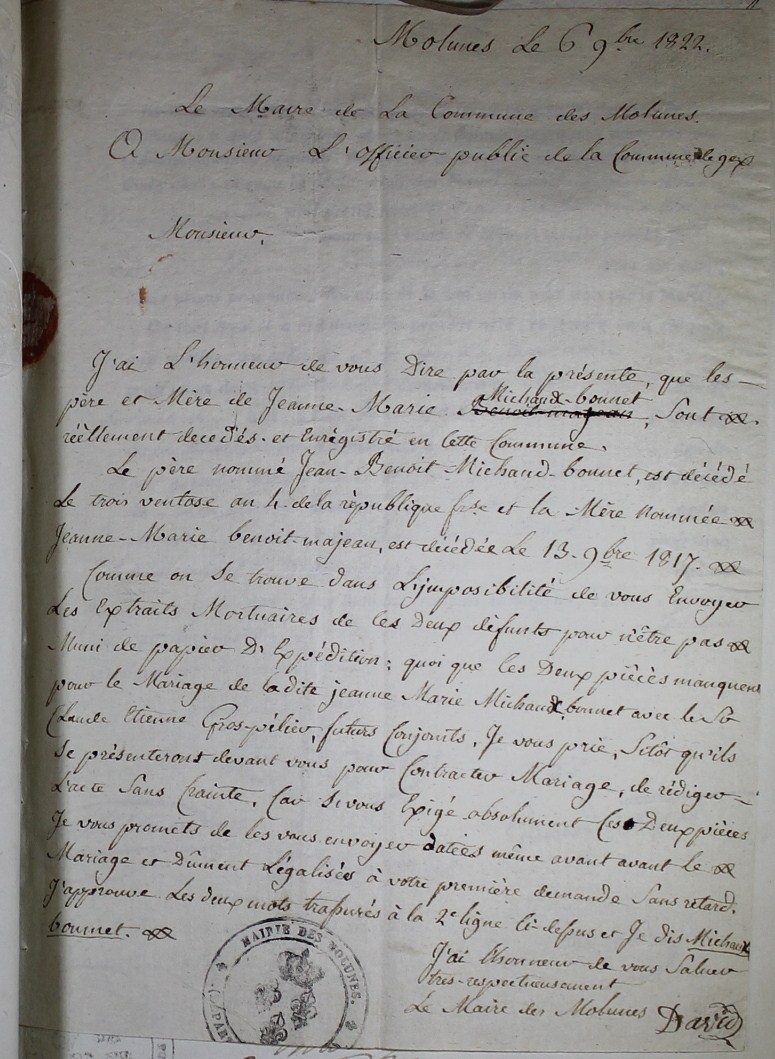 Molunes Le 6 9bre 1822.
Le Maire de La Commune des Molunes.
A Monsieur L'officier public de la Commune de gex
Monsieur.
J'ai L'honneur de vous Dire par la présente, que les
père et Mère de Jeanne-Marie Michaud-bonnet Benoit-majean, Sont
réellement decedés et Enrégistré en cette Commune.
Le père nommé Jean-Benoit Michaud-bonnet, est décédé
Le trois ventose an 4. de la république fse et la Mère Nommée
Jeanne-Marie benoit-majean, est décédée Le 13. 9bre 1817.
Comme on Se trouve dans L'imposibilité de vous Envoyer
Les Extraits Mortuaires de ces Deux défunts pour n'être pas
Muni de papier D'Expédition; quoi que ces Deux pièces manquent
pour le Mariage de ladite jeanne Marie Michaud bonnet avec le Sr
Claude Etienne Gros-pélier, futurs Conjoints, Je vous prie, Sitôt qu'ils
Se présenteront devant vous pour Contracter Mariage, de rédiger
L'acte Sans Crainte, Car Si vous Exigé absolument Ces Deux pièces
Je vous promets de les vous envoyer datées même avant avant le
Mariage et Dûment Légalisées à votre première demande Sans retard.
J'approuve Les deux mots traßurés à la 2e ligne ci-deßus et Je dis Michaux
bonnet.
J'ai L'honneur de vous Saluer
très-respectueusement
Le Maire des Molunes David
MAIRIE DES MOLUNES.